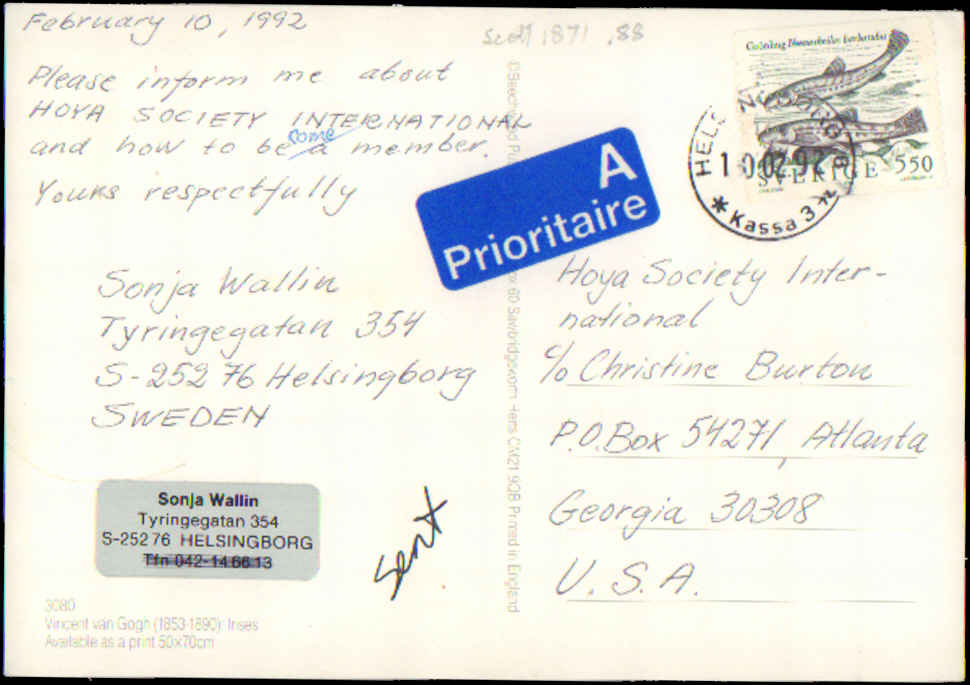 February 10, 1992
Scott 1871 .88
Please inform me about
HOYA SOCIETY INTERNATIONAL
and how to become a member.
Yours respectfully
Sonja Wallin
Tyringegatan 354
S-252 76 Helsingborg
SWEDEN
A
Prioritaire
SVERIGE 550
10.02.92
* Kassa 3
Hoya Society Inter-
national
c/o Christine Burton
P.O. Box 54271, Atlanta
Georgia 30308
U.S.A.
Sonja Wallin
Tyringegatan 354
S-252 76 HELSINGBORG
Tfn 042-14 66 13
Sent
60 Sawbridgeworth Herts CM21 9QB Printed in England
3080
Vincent van Gogh (1853-1890): Irises
Available as a print 50x70cm